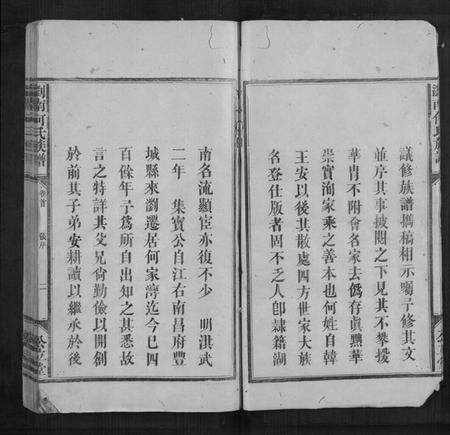 議修族譜携稿相示囑予修其文
並序其事披閱之下見其不攀援
華胄不附會名家去僞存眞黜華
崇實洵家乘之善本也何姓自韓
王安以後其散處四方世家大族
名登仕版者固不乏人卽隷籍湖
瀏南何氏族譜
卷首
二
南名流顯宦亦復不少 明淇武
二年 集寶公自江右南昌府豐
城縣來瀏遷居何家溥迄今巳四
百餘年予爲所自出知之甚悉故
言之特詳其父兄尙勤儉以開創
於前其子弟安耕讀以繼承於後